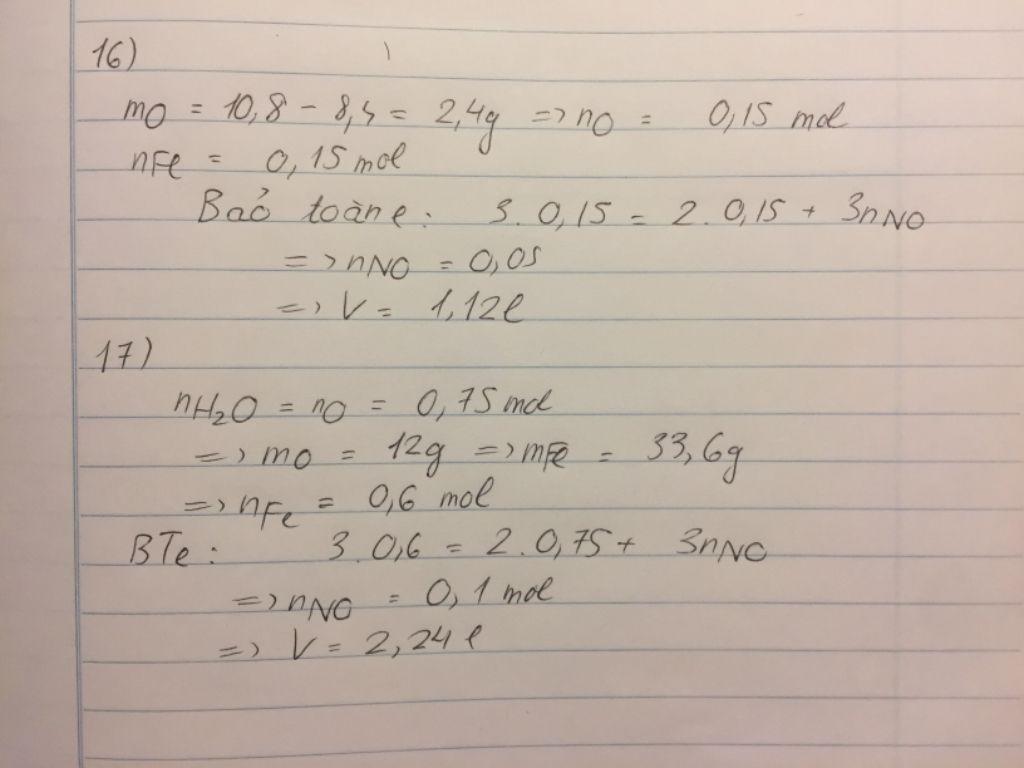 16)
mO = 10,8 - 8,4 = 2,4g => nO = 0,15 mol
nFe = 0,15 mol
Bảo toàn e: 3. 0,15 = 2. 0,15 + 3nNO
=> nNO = 0,05
=> V = 1,12l
17)
nH₂O = nO = 0,75 mol
=> mO = 12g => mFe = 33,6g
=> nFe = 0,6 mol
BTe: 3. 0,6 = 2. 0,75 + 3nNO
=> nNO = 0,1 mol
=> V = 2,24 l